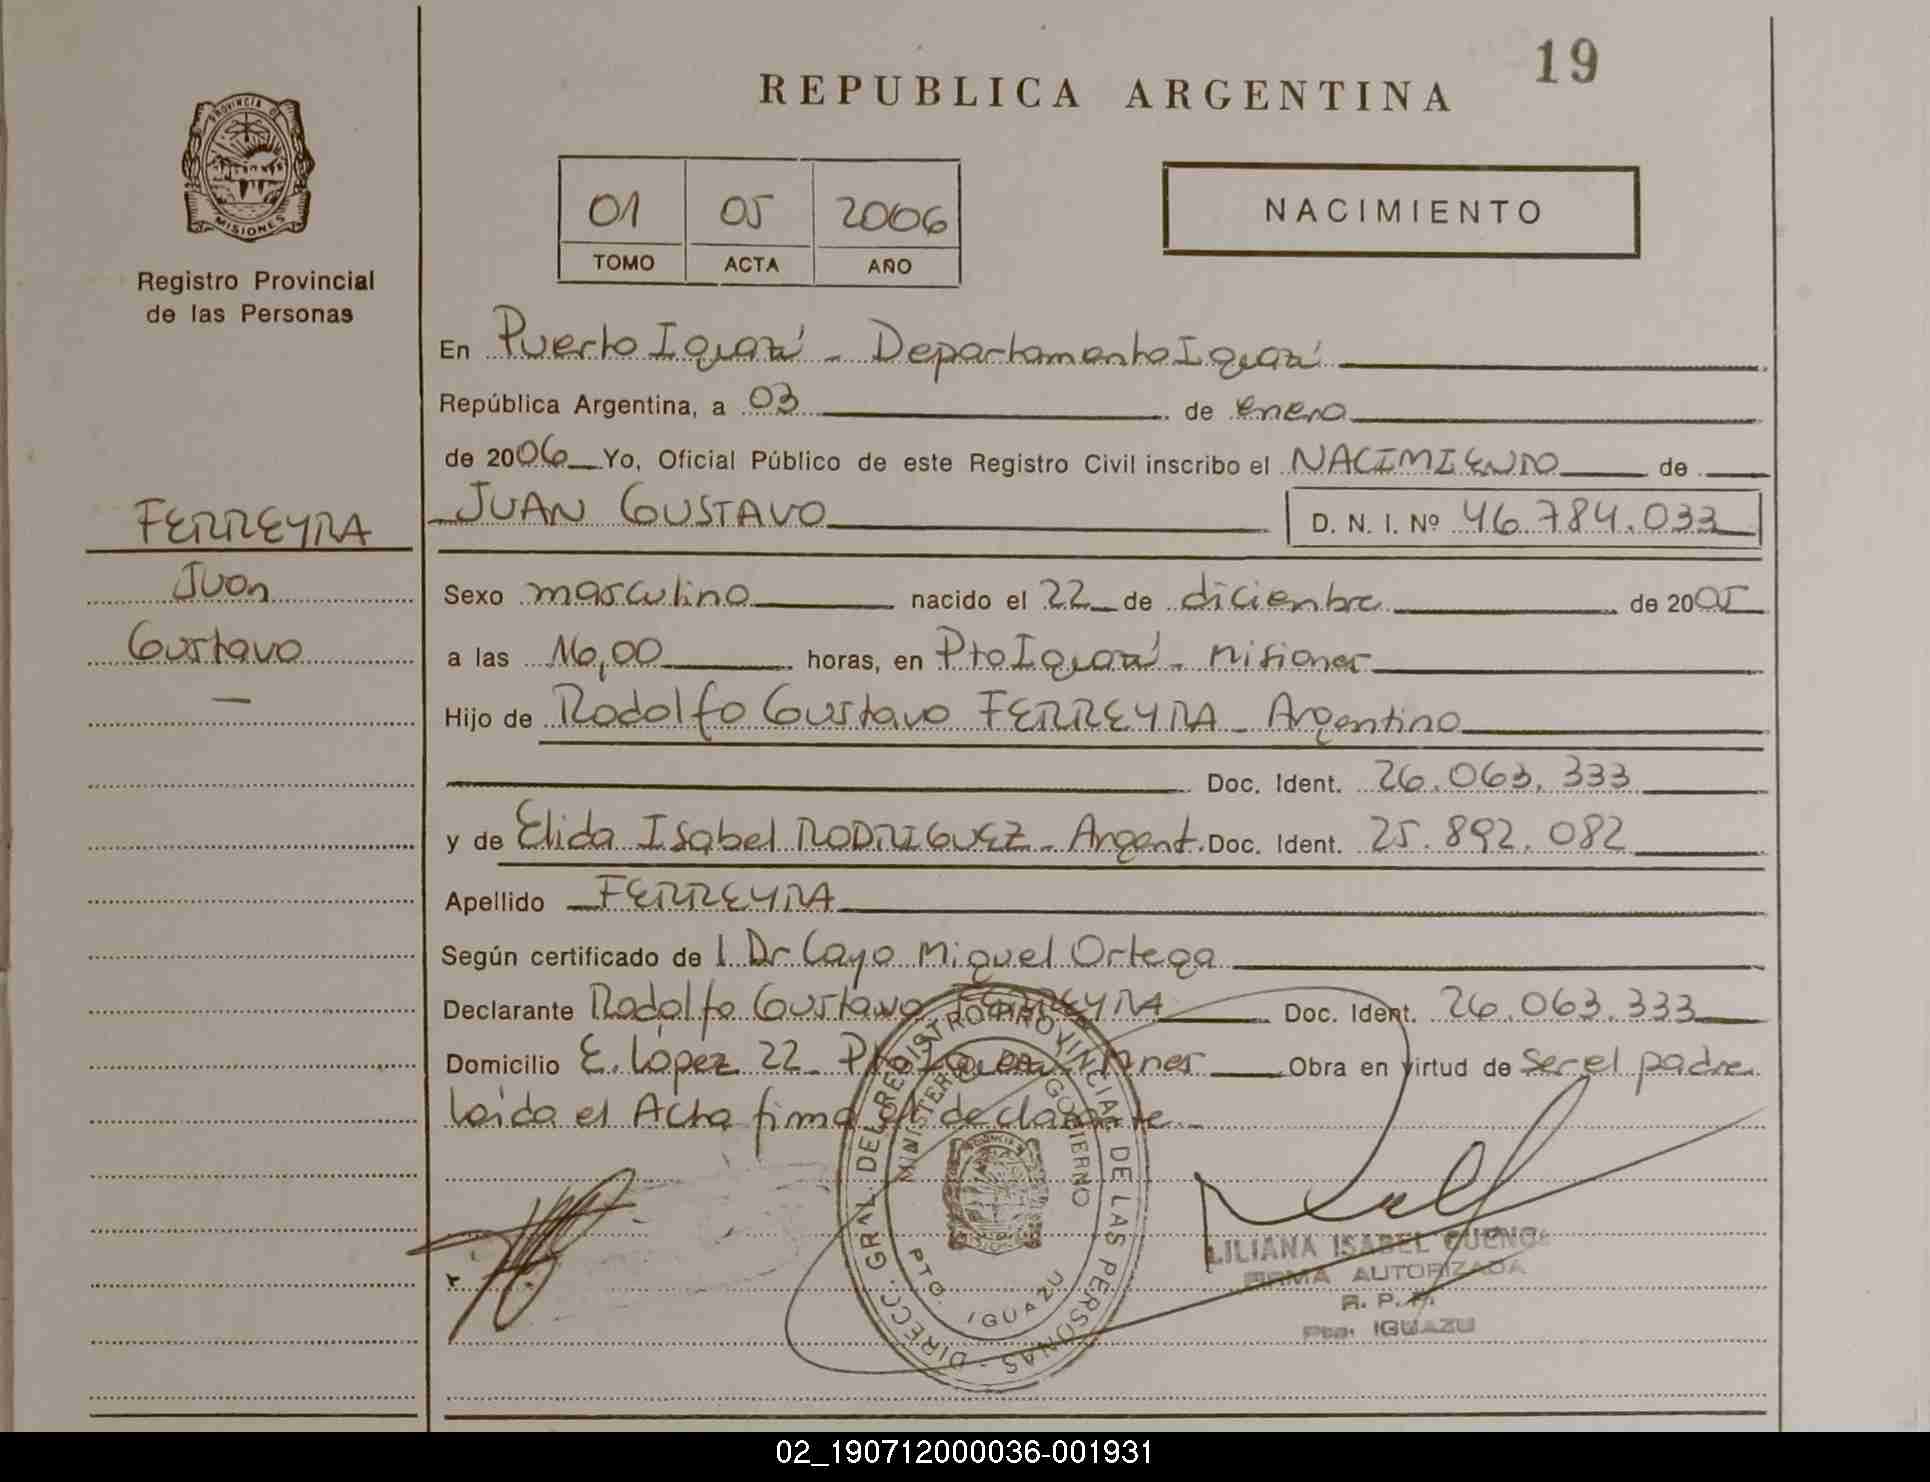 19
REPUBLICA ARGENTINA
PROVINCIA DE
MISIONES
Registro Provincial
de las Personas
01 05 2006
TOMO ACTA AÑO
NACIMIENTO
En Puerto Iguazú - Departamento Iguazú
República Argentina, a 03 de enero
de 2006 Yo, Oficial Público de este Registro Civil inscribo el NACIMIENTO de
JUAN GUSTAVO D. N. I. Nº 46.784.033
FERREYRA
Juan
Gustavo
—
Sexo masculino nacido el 22 de diciembre de 2005
a las 16,00 horas, en Pto Iguazú - Misiones
Hijo de Rodolfo Gustavo FERREYRA - Argentino
Doc. Ident. 26.063.333
y de Elida Isabel RODRIGUEZ - Argent. Doc. Ident. 25.892.082
Apellido FERREYRA
Según certificado de l Dr Cayo Miguel Ortega
Declarante Rodolfo Gustavo FERREYRA Doc. Ident. 26.063.333
Domicilio E. López 22 - Pto Iguazú Mnes Obra en virtud de ser el padre
Leída el Acta firma el declarante -
DIRECC. GRAL. DEL REGISTRO PROVINCIAL DE LAS PERSONAS -
MINISTERIO GOBIERNO
PTO. IGUAZU
LILIANA ISABEL CUENCA
FIRMA AUTORIZADA
R. P. P.
Pto. IGUAZU
02_190712000036-001931